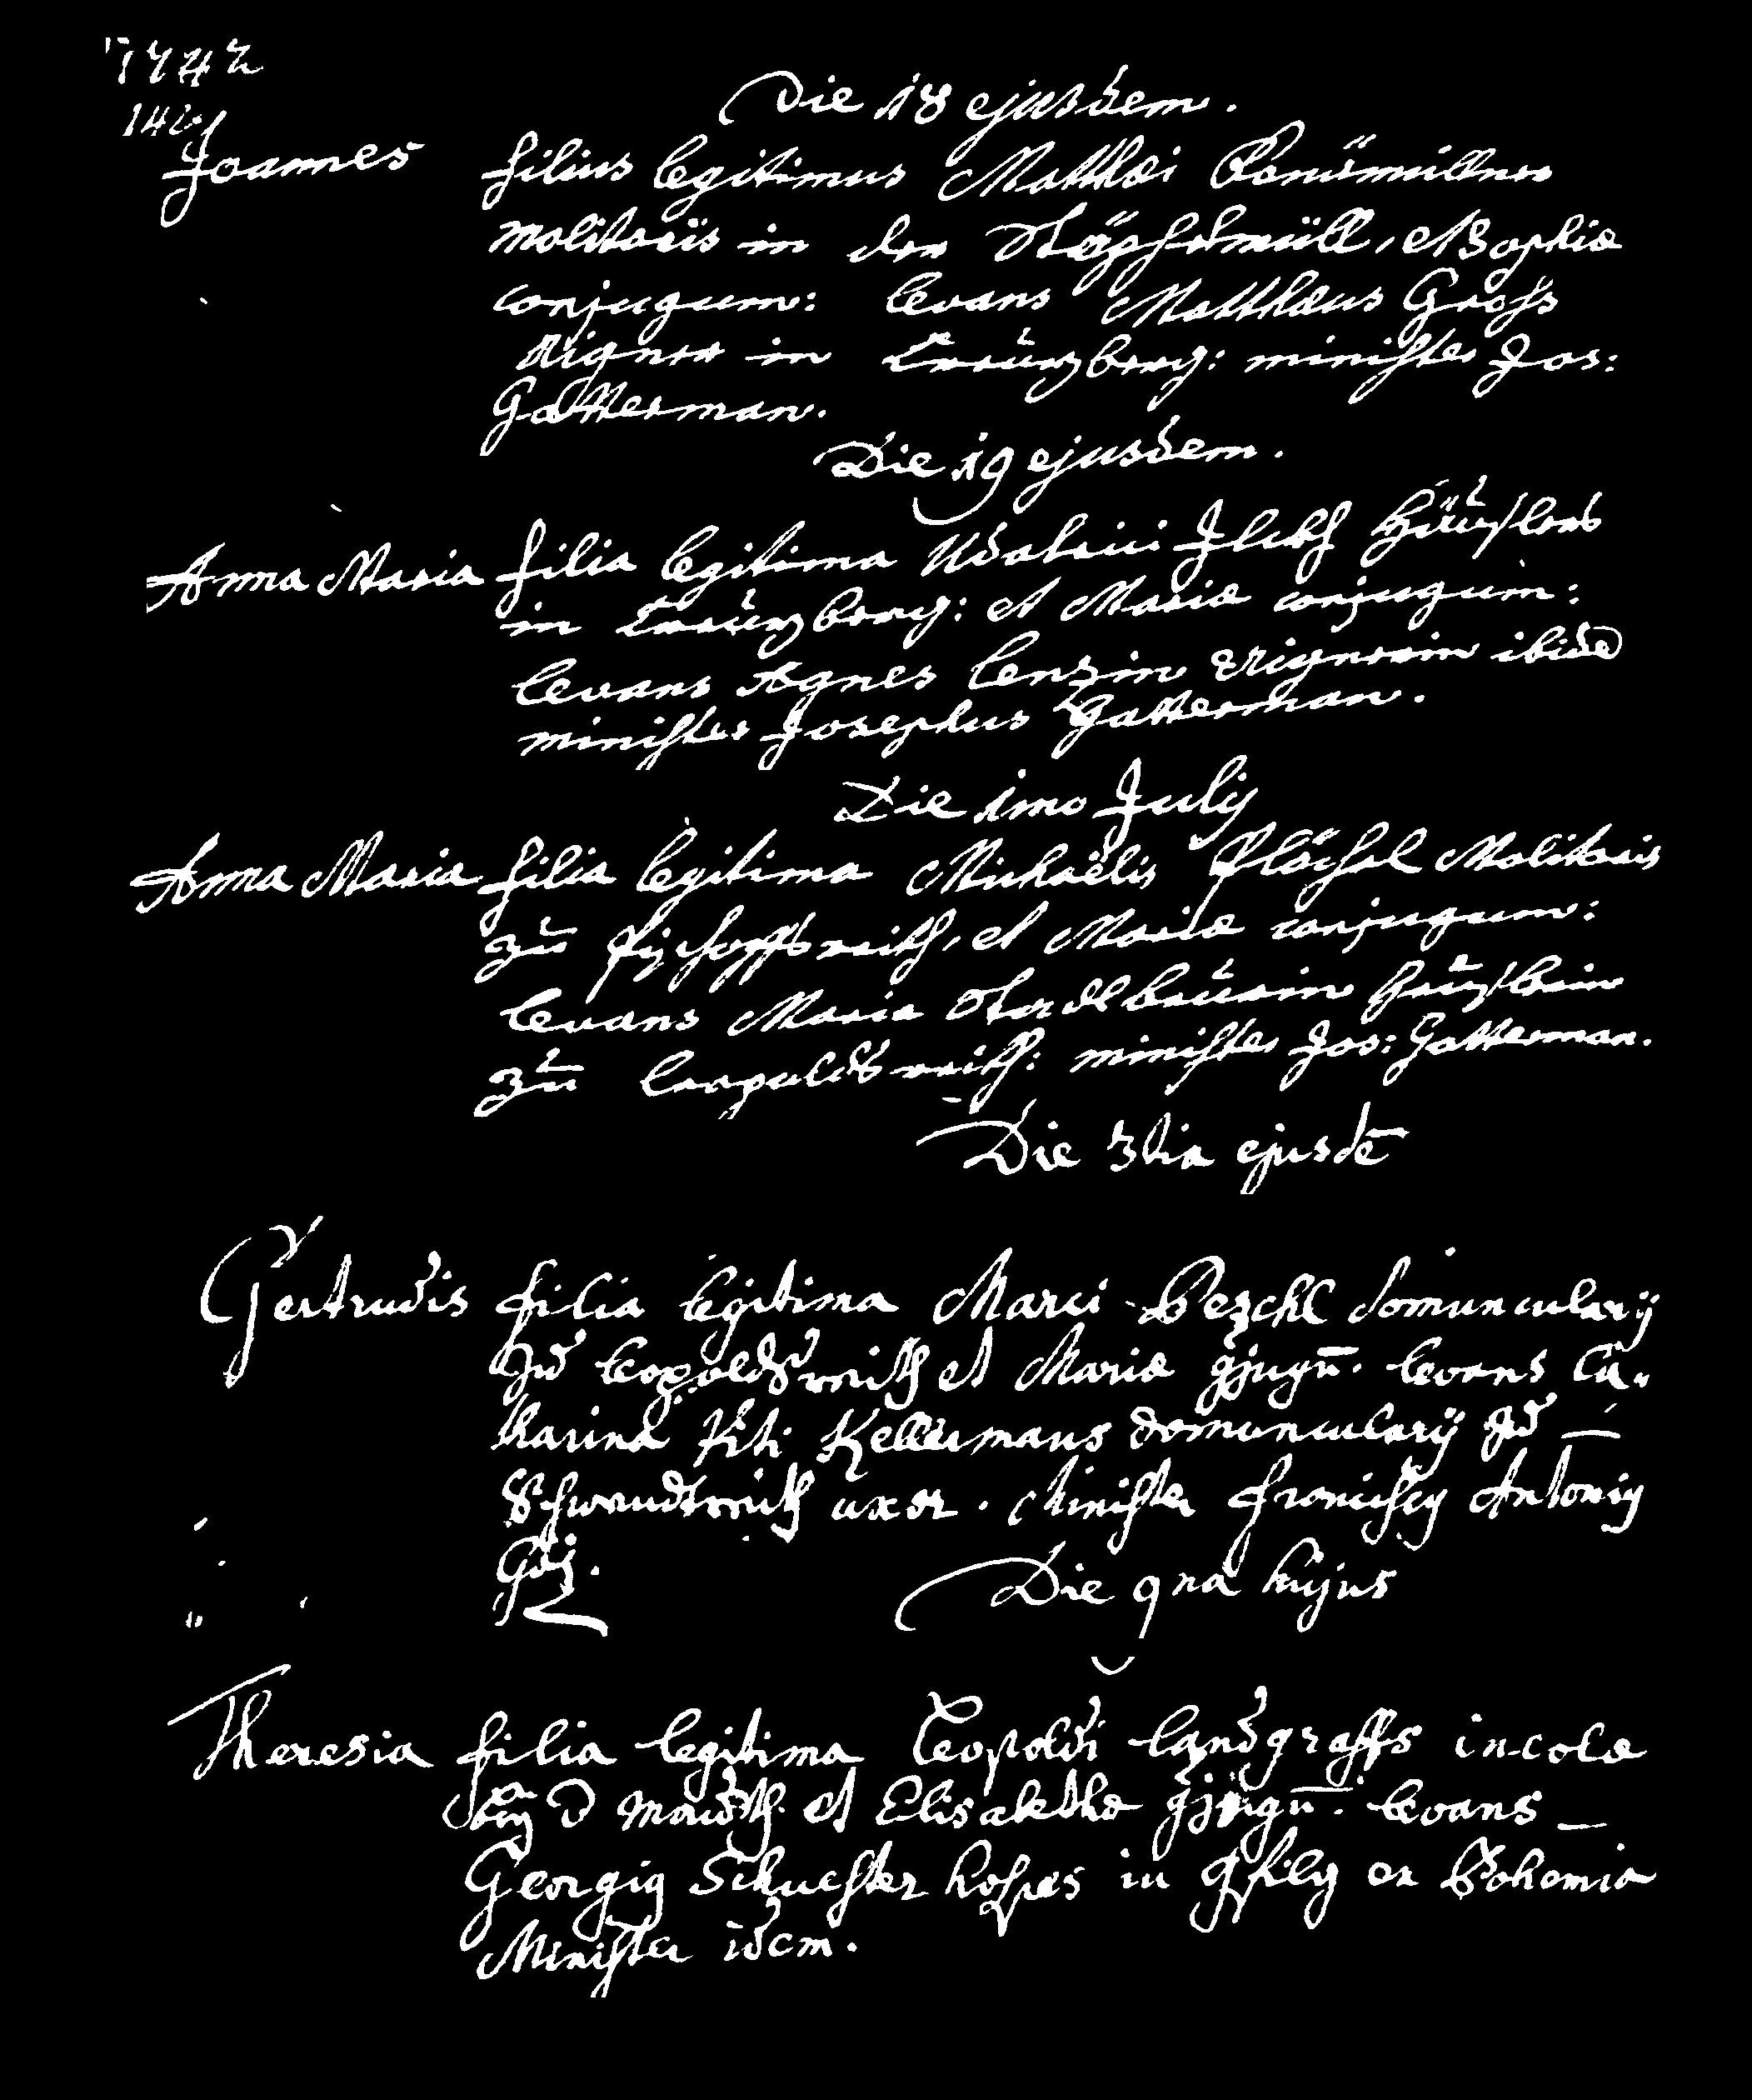 1742
Die 18 ejusdem.
Joannes filius legitimus Matthæi
Molitoris in der et Sophiæ
conjugum: levans Matthæus Gross
Aigner in Creüzberg: minister Jos:
Gatterman.
Die 19 ejusdem.
Anna Maria filia legitima Udalrici
in Creüzberg: et Mariæ conjugum:
levans Agnes Lenzin ibidē
minister Josephus Gatterman.
Die 1mo July
Anna Maria filia legitima Michaëlis Molitoris
zu et Mariæ conjugum:
levans Maria
zu Leopoldsreith: minister Jos: Gatterman.
Die 3tia ejusdē
Gertrudis filia legitima Marci Peschl domuncularij
zu Leopoldsreith et Mariæ levans Ca-
tharina Kellermans domuncularij zu
Schwendtreith uxor. Minister Franciscg Antonig
Die 9na hujus
Theresia filia legitima Leopoldi Landgraffs incolæ
et Elisabethæ levans
Georgig Schuester hospes in ex Bohemia
Minister idem.